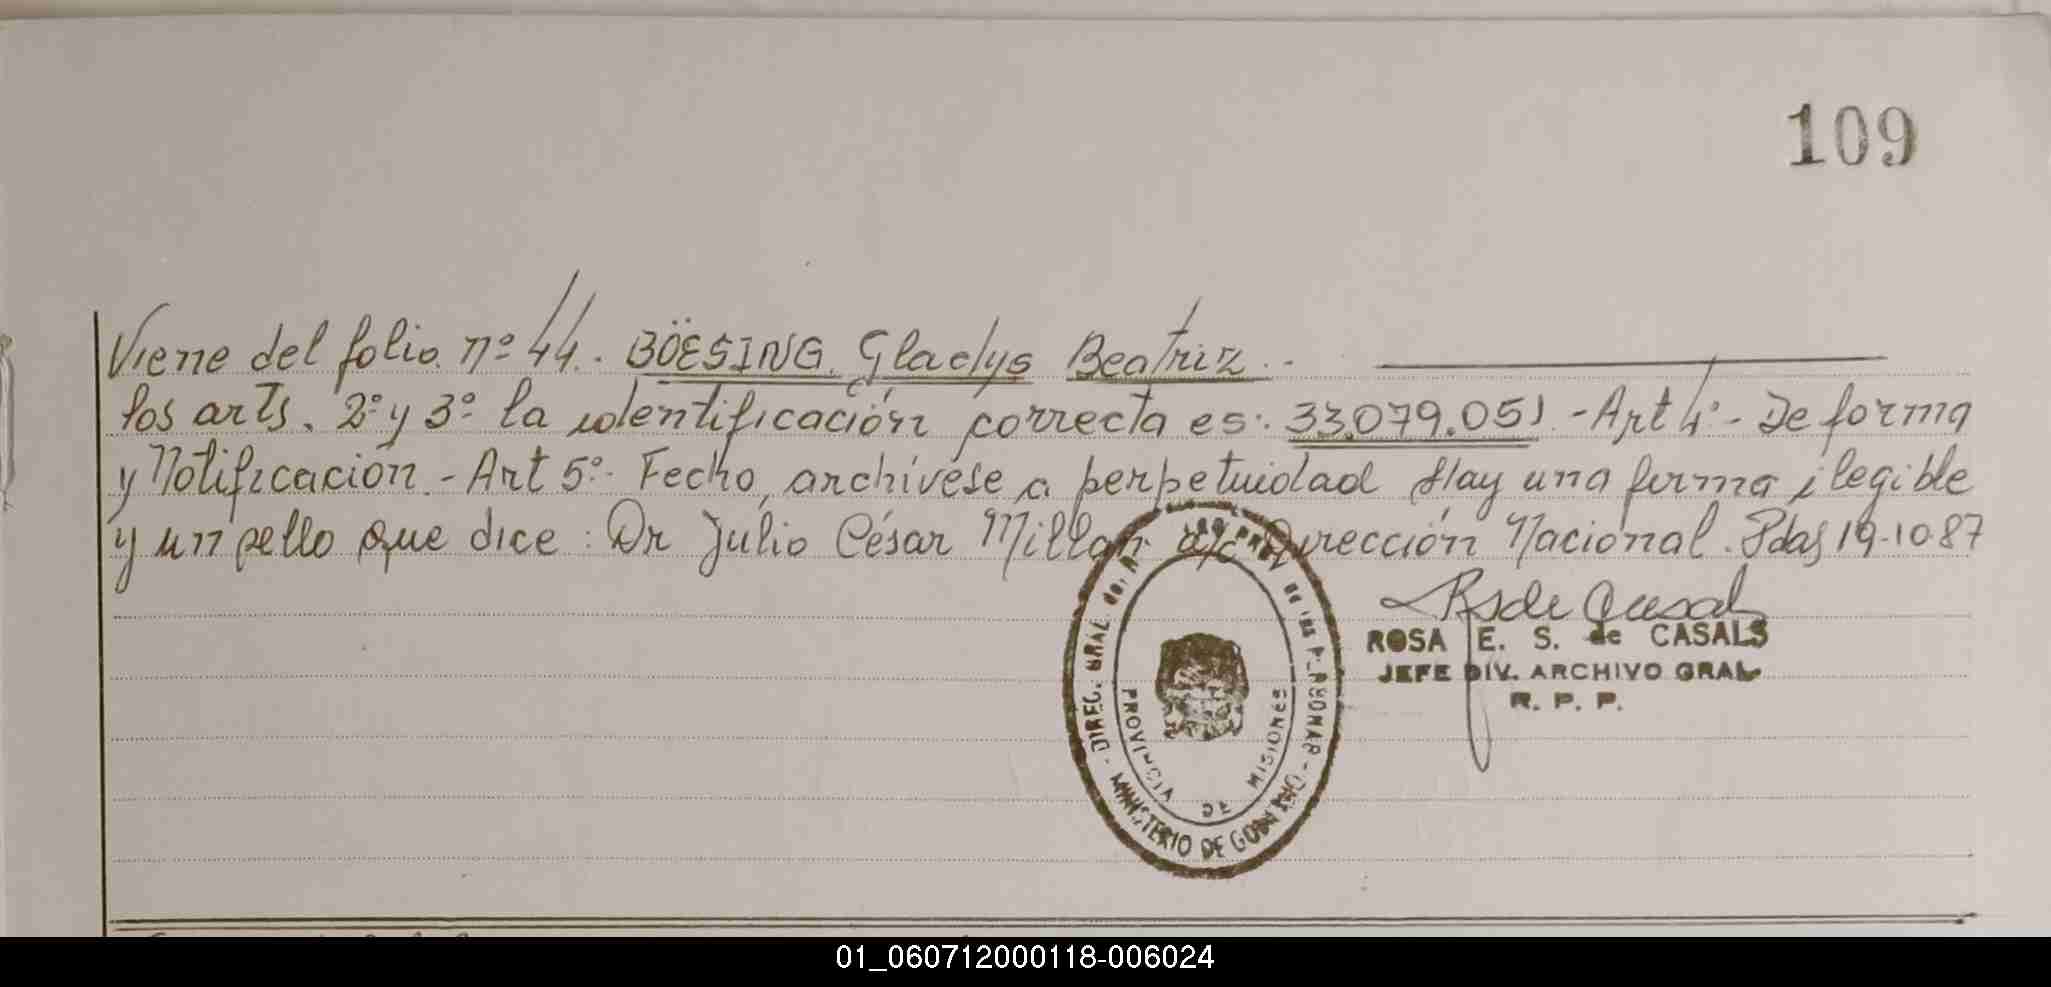 109
Viene del folio nº 44. BÖESING, Gladys Beatriz.-
los arts. 2º y 3º la identificación correcta es: 33.079.051 - Art 4º - De forma
y Notificación. - Art 5º - Fecho, archívese a perpetuidad Hay una firma ilegible
y un sello que dice: Dr Julio César Millan a/c Dirección Nacional. Pdas 19-10-87
ROSA E. S. de CASALS
JEFE DIV. ARCHIVO GRAL
R. P. P.
DIREC. GRAL del de las PERSONAS - MINISTERIO DE GOBIERNO -
PROVINCIA DE MISIONES
01_060712000118-006024